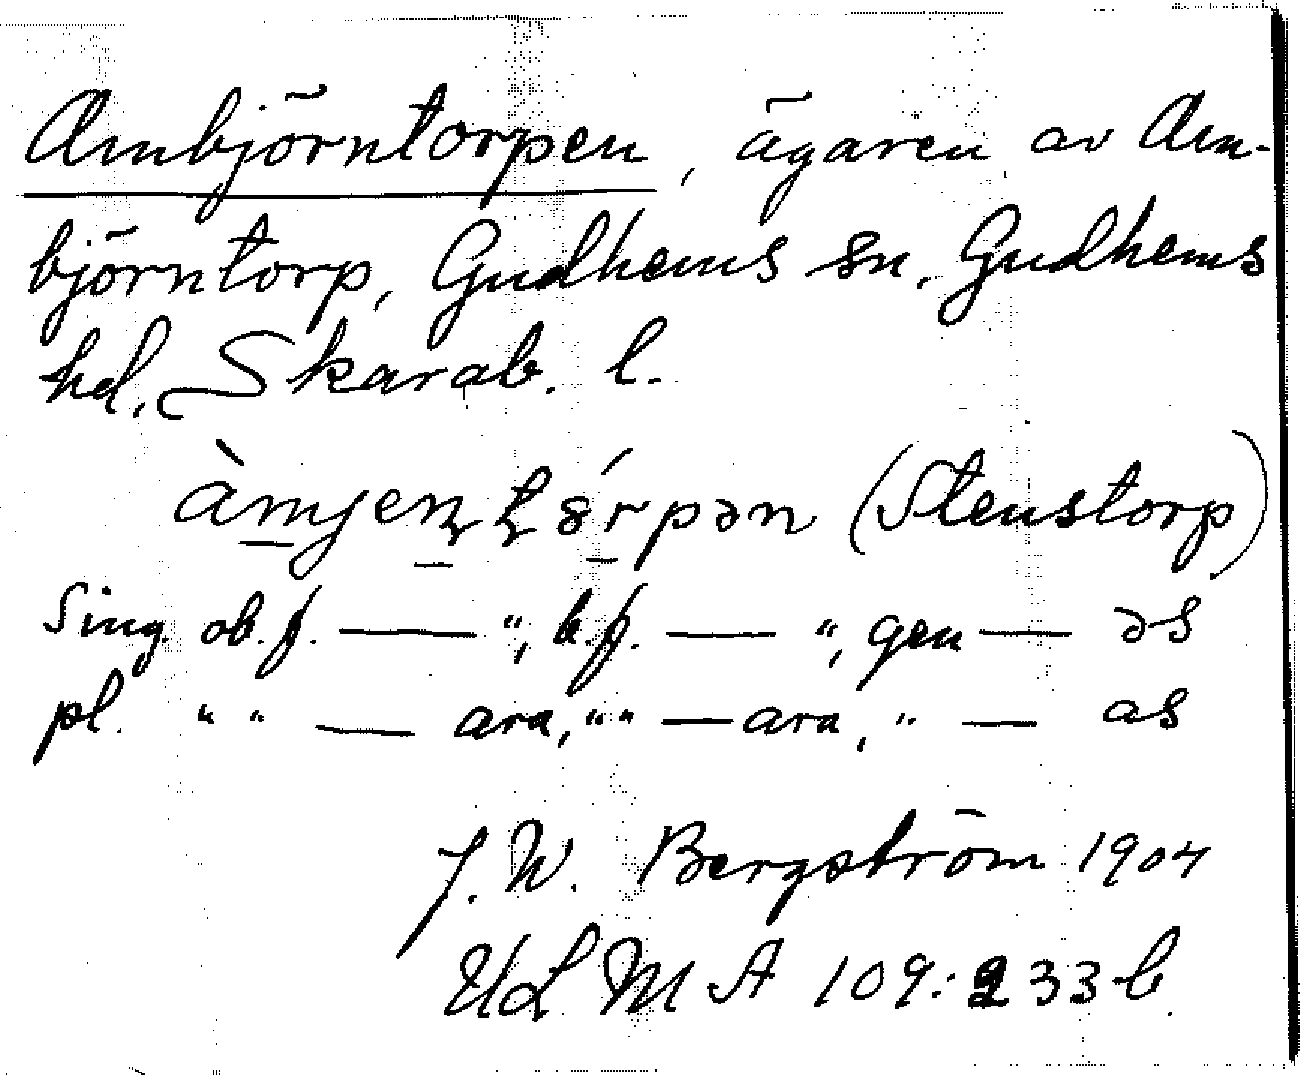 Ambjörntorpen, ägaren av Am-
björntorp, Gudhems sn, Gudhems
hd, Skarab. l.
(Stenstorp)
Sing. ob.f. — ", b.f. — ", gen — əs
pl. " " — ara, " " — ara, " — as
J. W. Bergström 1904
ULMA 109:233 b.